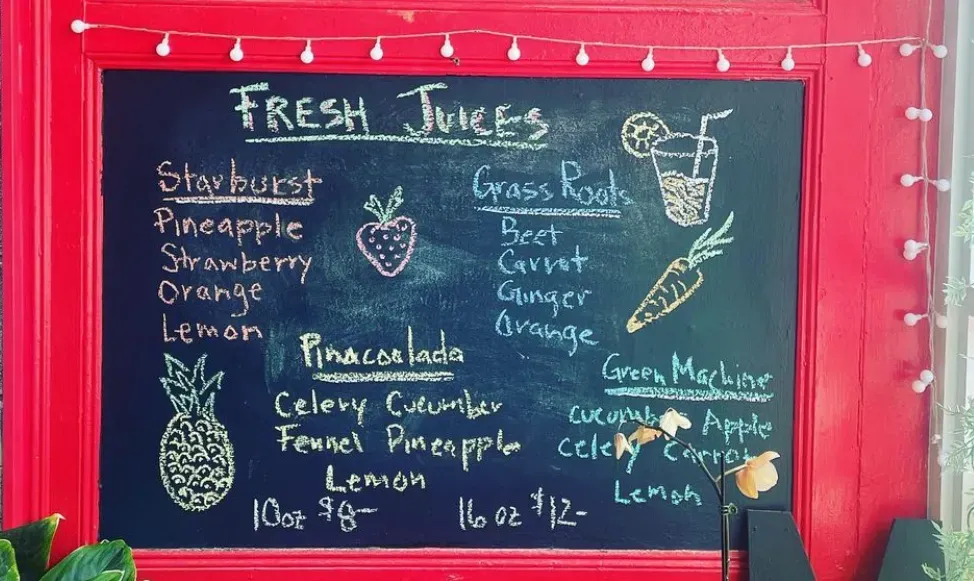 FRESH JUICES
Starburst
Pineapple
Strawberry
Orange
Lemon
Grass Roots
Beet
Carrot
Ginger
Orange
Pinacoalada
Celery Cucumber
Fennel Pineapple
Lemon
Green Machine
cucumber Apple
celery Carrot
Lemon
10oz $8-
16oz $12-